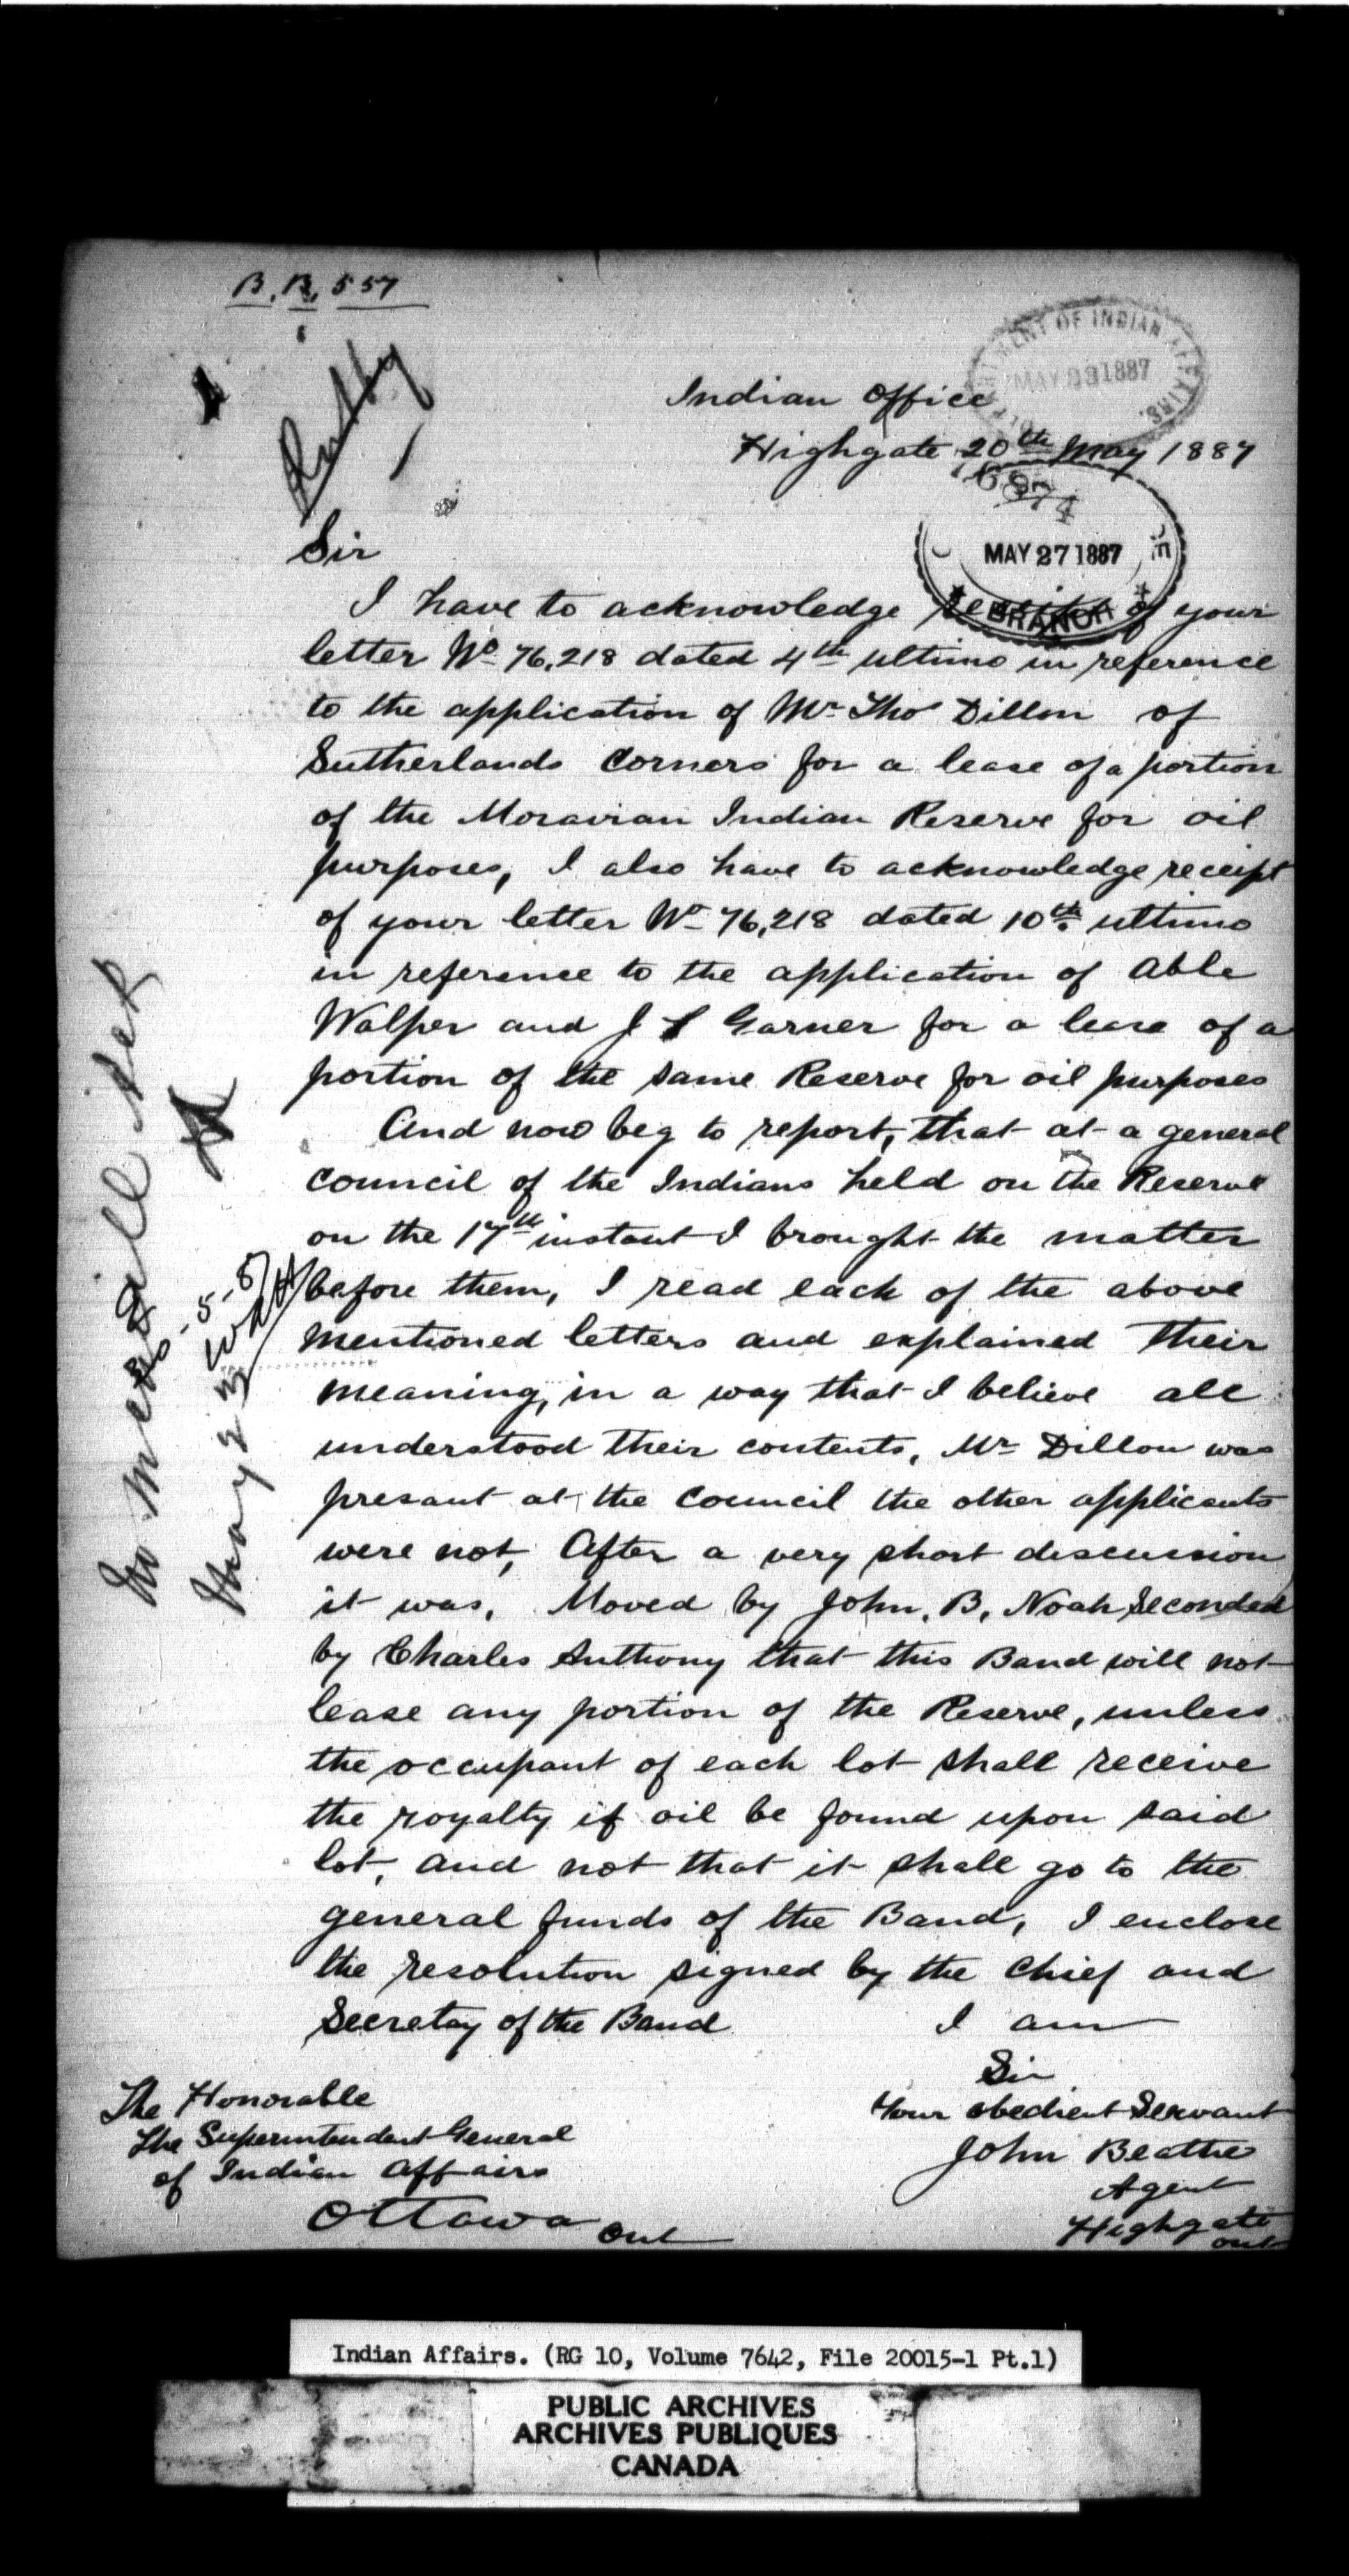 B.B. 557
DEPARTMENT OF INDIAN AFFAIRS.
MAY 23 1887
Indian Office
Highgate 20th May 1887
76874
MAY 27 1887
BRANCH
Sir
I have to acknowledge receipt of your
letter No 76,218 dated 4th ultimo in reference
to the application of Mr Tho Dillon of
Sutherlands Corners for a lease of a portion
of the Moravian Indian Reserve for oil
purposes, I also have to acknowledge receipt
of your letter No 76,218 dated 10th ultimo
in reference to the application of Able
Walper and J S Garner for a lease of a
portion of the same Reserve for oil purposes
And now beg to report, that at a general
council of the Indians held on the Reserve
on the 17th instant I brought the matter
before them, I read each of the above
mentioned letters and explained their
meaning, in a way that I believe all
understood their contents, Mr Dillon was
presant at the Council the other applicants
were not, After a very short discussion
it was, Moved by John. B. Noah Seconded
by Charles Anthony that this Band will not
lease any portion of the Reserve, unless
the occupant of each lot shall receive
the royalty if oil be found upon said
lot, and not that it shall go to the
general funds of the Band, I enclose
the resolution signed by the Chief and
Secretay of the Band
I am
Sir
Your obedient Servant
John Beattie
Agent
Highgate
Ont
The Honorable
The Superintendent General
of Indian Affairs
Ottawa Ont
Indian Affairs. (RG 10, Volume 7642, File 20015-1 Pt.1)
PUBLIC ARCHIVES
ARCHIVES PUBLIQUES
CANADA